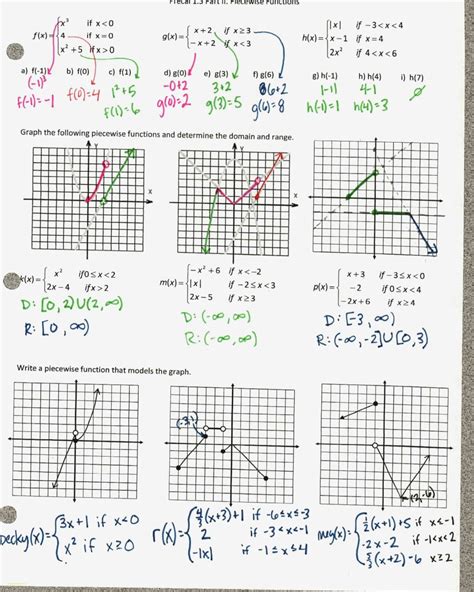 Precal 1.3 Part II: Piecewise Functions
f(x)= { x³ if x<0
4 if x=0
x²+5 if x>0
g(x)= { x+2, if x≥3
-x+2 if x<3
h(x)= { |x| if -3<x<4
x-1 if x=4
2x² if 4<x<6
a) f(-1) b) f(0) c) f(1) d) g(0) e) g(3) f) g(6) g) h(-1) h) h(4) i) h(7)
(-1)³ f(0)=4 1²+5 -0+2 3+2 6+2 |-1| 4-1 ∅
f(-1)=-1 f(1)=6 g(0)=2 g(3)=5 g(6)=8 h(-1)=1 h(4)=3
Graph the following piecewise functions and determine the domain and range.
Y
Y
X
X
k(x)= { x² if 0≤x<2
2x-4 if x>2
D: [0,2)U(2,∞)
R: [0,∞)
m(x)= { -x²+6 if x<-2
|x| if -2≤x<3
2x-5 if x≥3
D: (-∞,∞)
R: (-∞,∞)
p(x)= { x+3 if -3≤x<0
-2 if 0≤x<4
-2x+6 if x≥4
D: [-3,∞)
R: (-∞,-2]U[0,3)
Write a piecewise function that models the graph.
becky(x)= { 3x+1 if x<0
x² if x≥0
r(x)= { (x+3)+1 if -6≤x≤-3
2 if -3<x<-1
-|x| if -1≤x≤4
(x+1)+5 if x<-1
-2x-2 if -1<x<2
(x+2)-6 x≥2